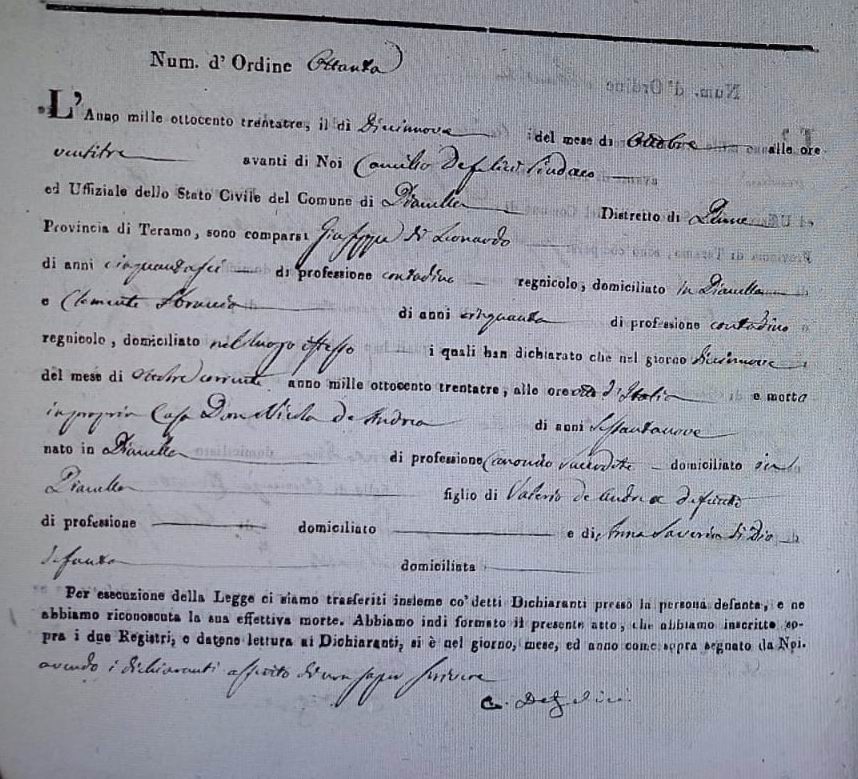 Num. d' Ordine Ottanta
L'Anno mille ottocento trentatre, il dì Diecinnove del mese di Ottobre alle ore
ventitre avanti di Noi Camillo Defelici Sindaco
ed Uffiziale dello Stato Civile del Comune di Pianella Distretto di Penne
Provincia di Teramo, sono comparsi Giuseppe di Leonardo
di anni cinquantasei di professione contadino regnicolo, domiciliato in Pianella
e Clemente Sbraccia di anni cinquanta di professione contadino
regnicolo, domiciliato nel luogo istesso i quali han dichiarato che nel giorno diecinnove
del mese di Ottobre corrente anno mille ottocento trentatre, alle ore d'Italia e morto
in propria Casa Don Nicola de Andrea di anni Sessantanove
nato in Pianella di professione Canonico Sacerdote domiciliato in
Pianella figlio di Valerio de Andrea defunto
di professione domiciliato e di Anna Saveria di Dio
defunta domiciliata
Per esecuzione della Legge ci siamo trasferiti insieme co' detti Dichiaranti presso la persona defunta, e ne
abbiamo riconosciuta la sua effettiva morte. Abbiamo indi formato il presente atto, che abbiamo inscritto so-
pra i due Registri, e datone lettura ai Dichiaranti, si è nel giorno, mese, ed anno come sopra segnato da Noi.
avendo i dichiaranti asserito di non saper scrivere
C. Defelici